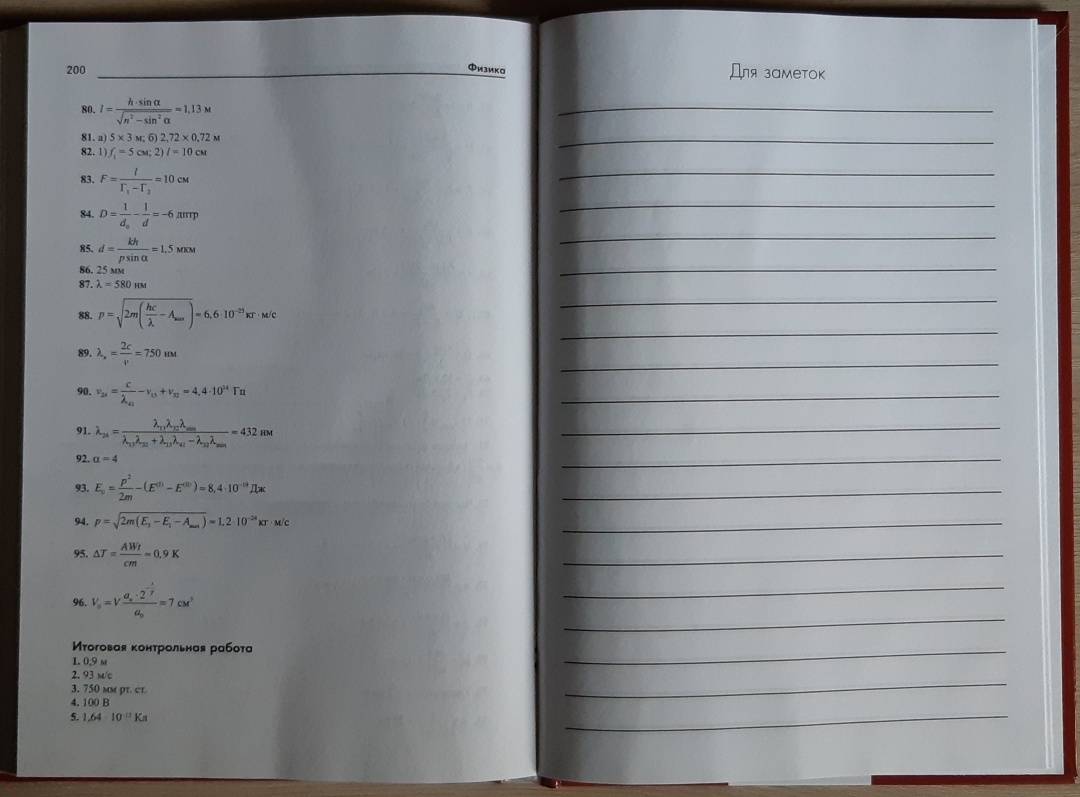 200
Физика
80. l = h · sin α / √(n² – sin² α) ≈ 1,13 м
81. а) 5 × 3 м; б) 2,72 × 0,72 м
82. 1) f₁ = 5 см; 2) l = 10 см
83. F = l / (Γ₁ – Γ₂) = 10 см
84. D = 1/d₀ – 1/d = –6 дптр
85. d = kh / (p sin α) = 1,5 мкм
86. 25 мм
87. λ = 580 нм
88. p = √(2m(hc/λ – Aвых)) ≈ 6,6 · 10⁻²⁵ кг · м/с
89. λ = 2c/ν = 750 нм
90. ν₂₄ = c/λ₄₁ – ν₁₃ + ν₃₂ ≈ 4,4 · 10¹⁴ Гц
91. λ₂₄ = λ₁₃λ₃₂λmin / (λ₁₃λ₃₂ + λ₁₃λ – λ₃₂λmin) ≈ 432 нм
92. α = 4
93. E₀ = p²/2m – (E⁽¹⁾ – E⁽ᴵᴵ⁾) ≈ 8,4 · 10⁻¹⁹ Дж
94. p = √(2m(E₃ – E₁ – Aвых)) ≈ 1,2 · 10⁻²⁴ кг · м/с
95. ΔT = AWt / cm ≈ 0,9 К
96. V₀ = V = 7 см³
Итоговая контрольная работа
1. 0,9 м
2. 93 м/с
3. 750 мм рт. ст.
4. 100 В
5. 1,64 · 10 Кл
Для заметок